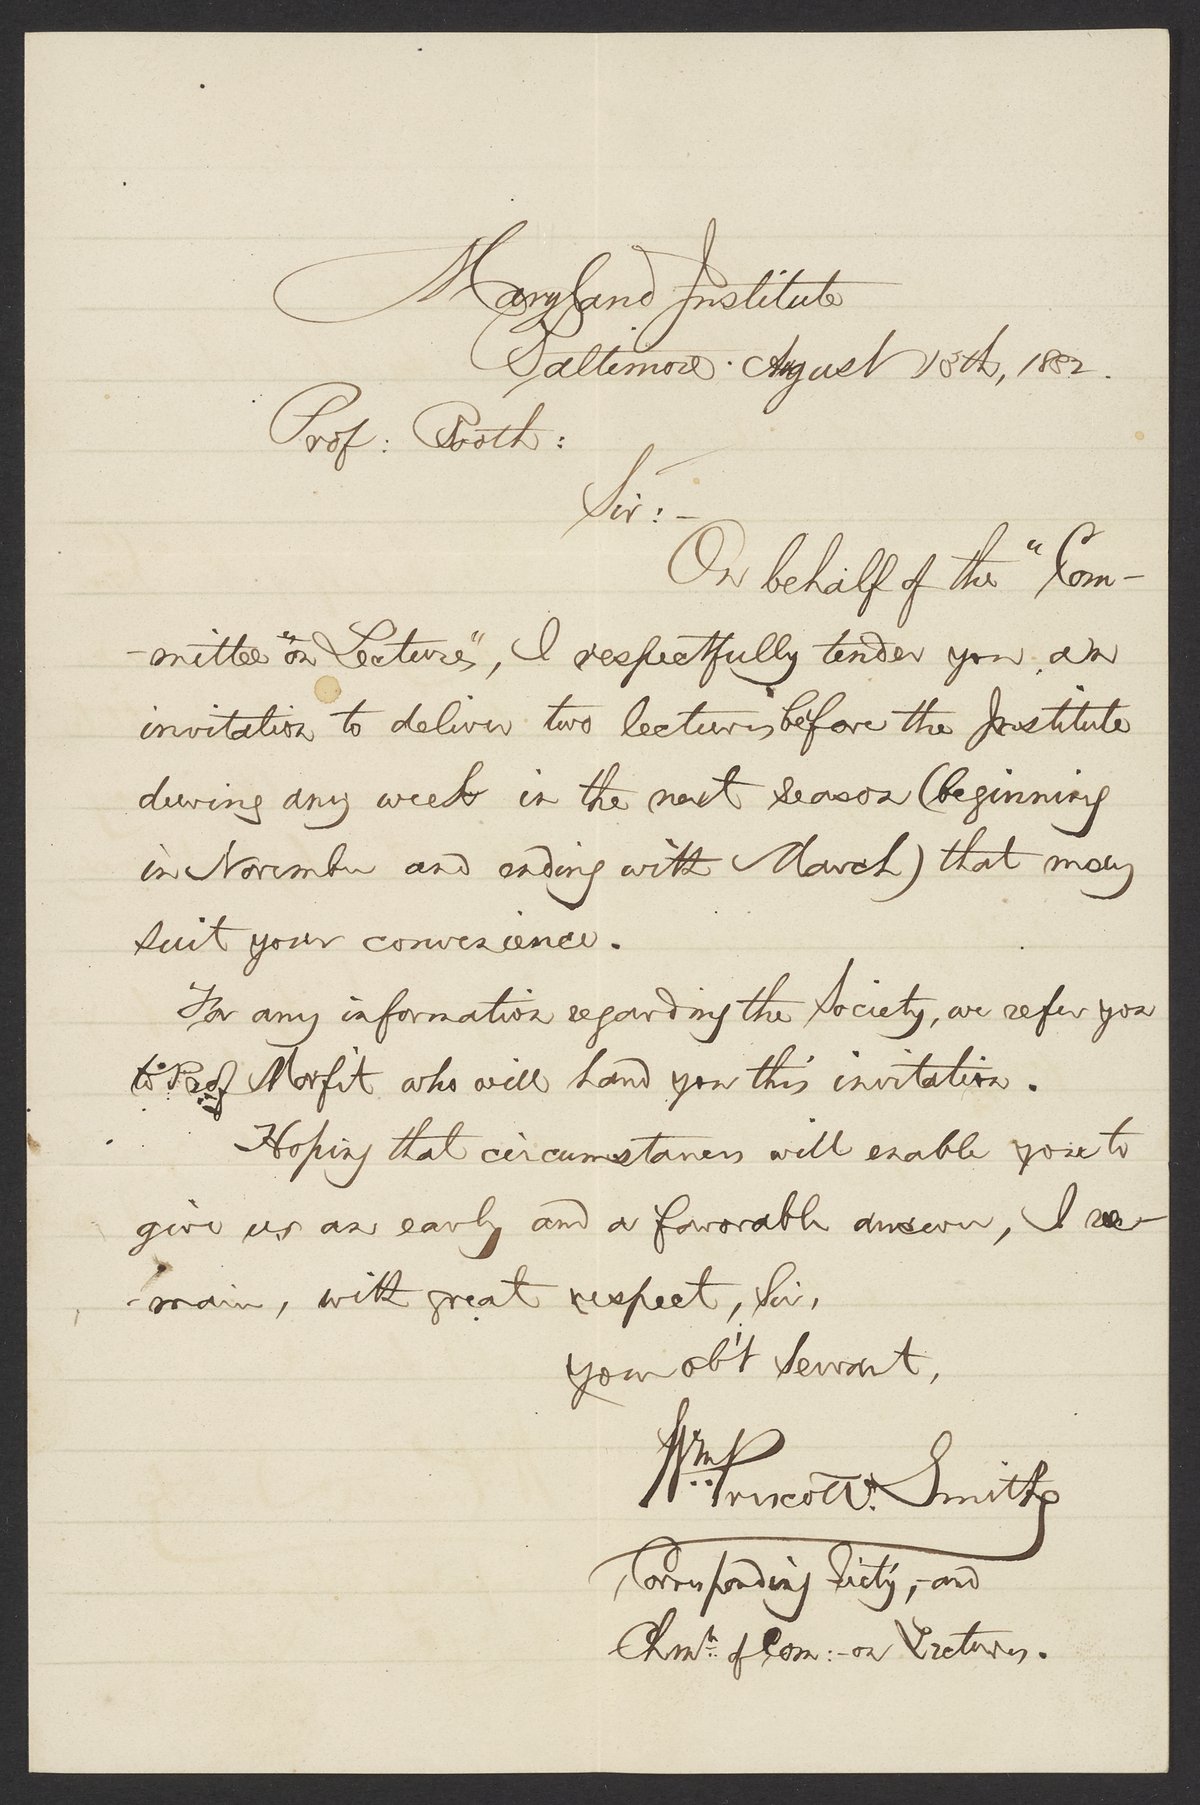 Maryland Institute
Baltimore. August 18th, 1852.
Prof: Booth:
Sir:-
On behalf of the "Com-
-mittee "on Lectures", I respectfully tender you an
invitation to deliver two lectures before the Institute
during any week in the next season (beginning
in November and ending with March) that may
suit your convenience.
For any information regarding the Society, we refer you
to Prof Morfit who will hand you this invitation.
Hoping that circumstances will enable you to
give us an early and a favorable answer, I re-
-main, with great respect, Sir,
your ob't servant,
Wm Prescott Smith
Corresponding Sec'ty, and
Chmn of Com:-on Lectures.